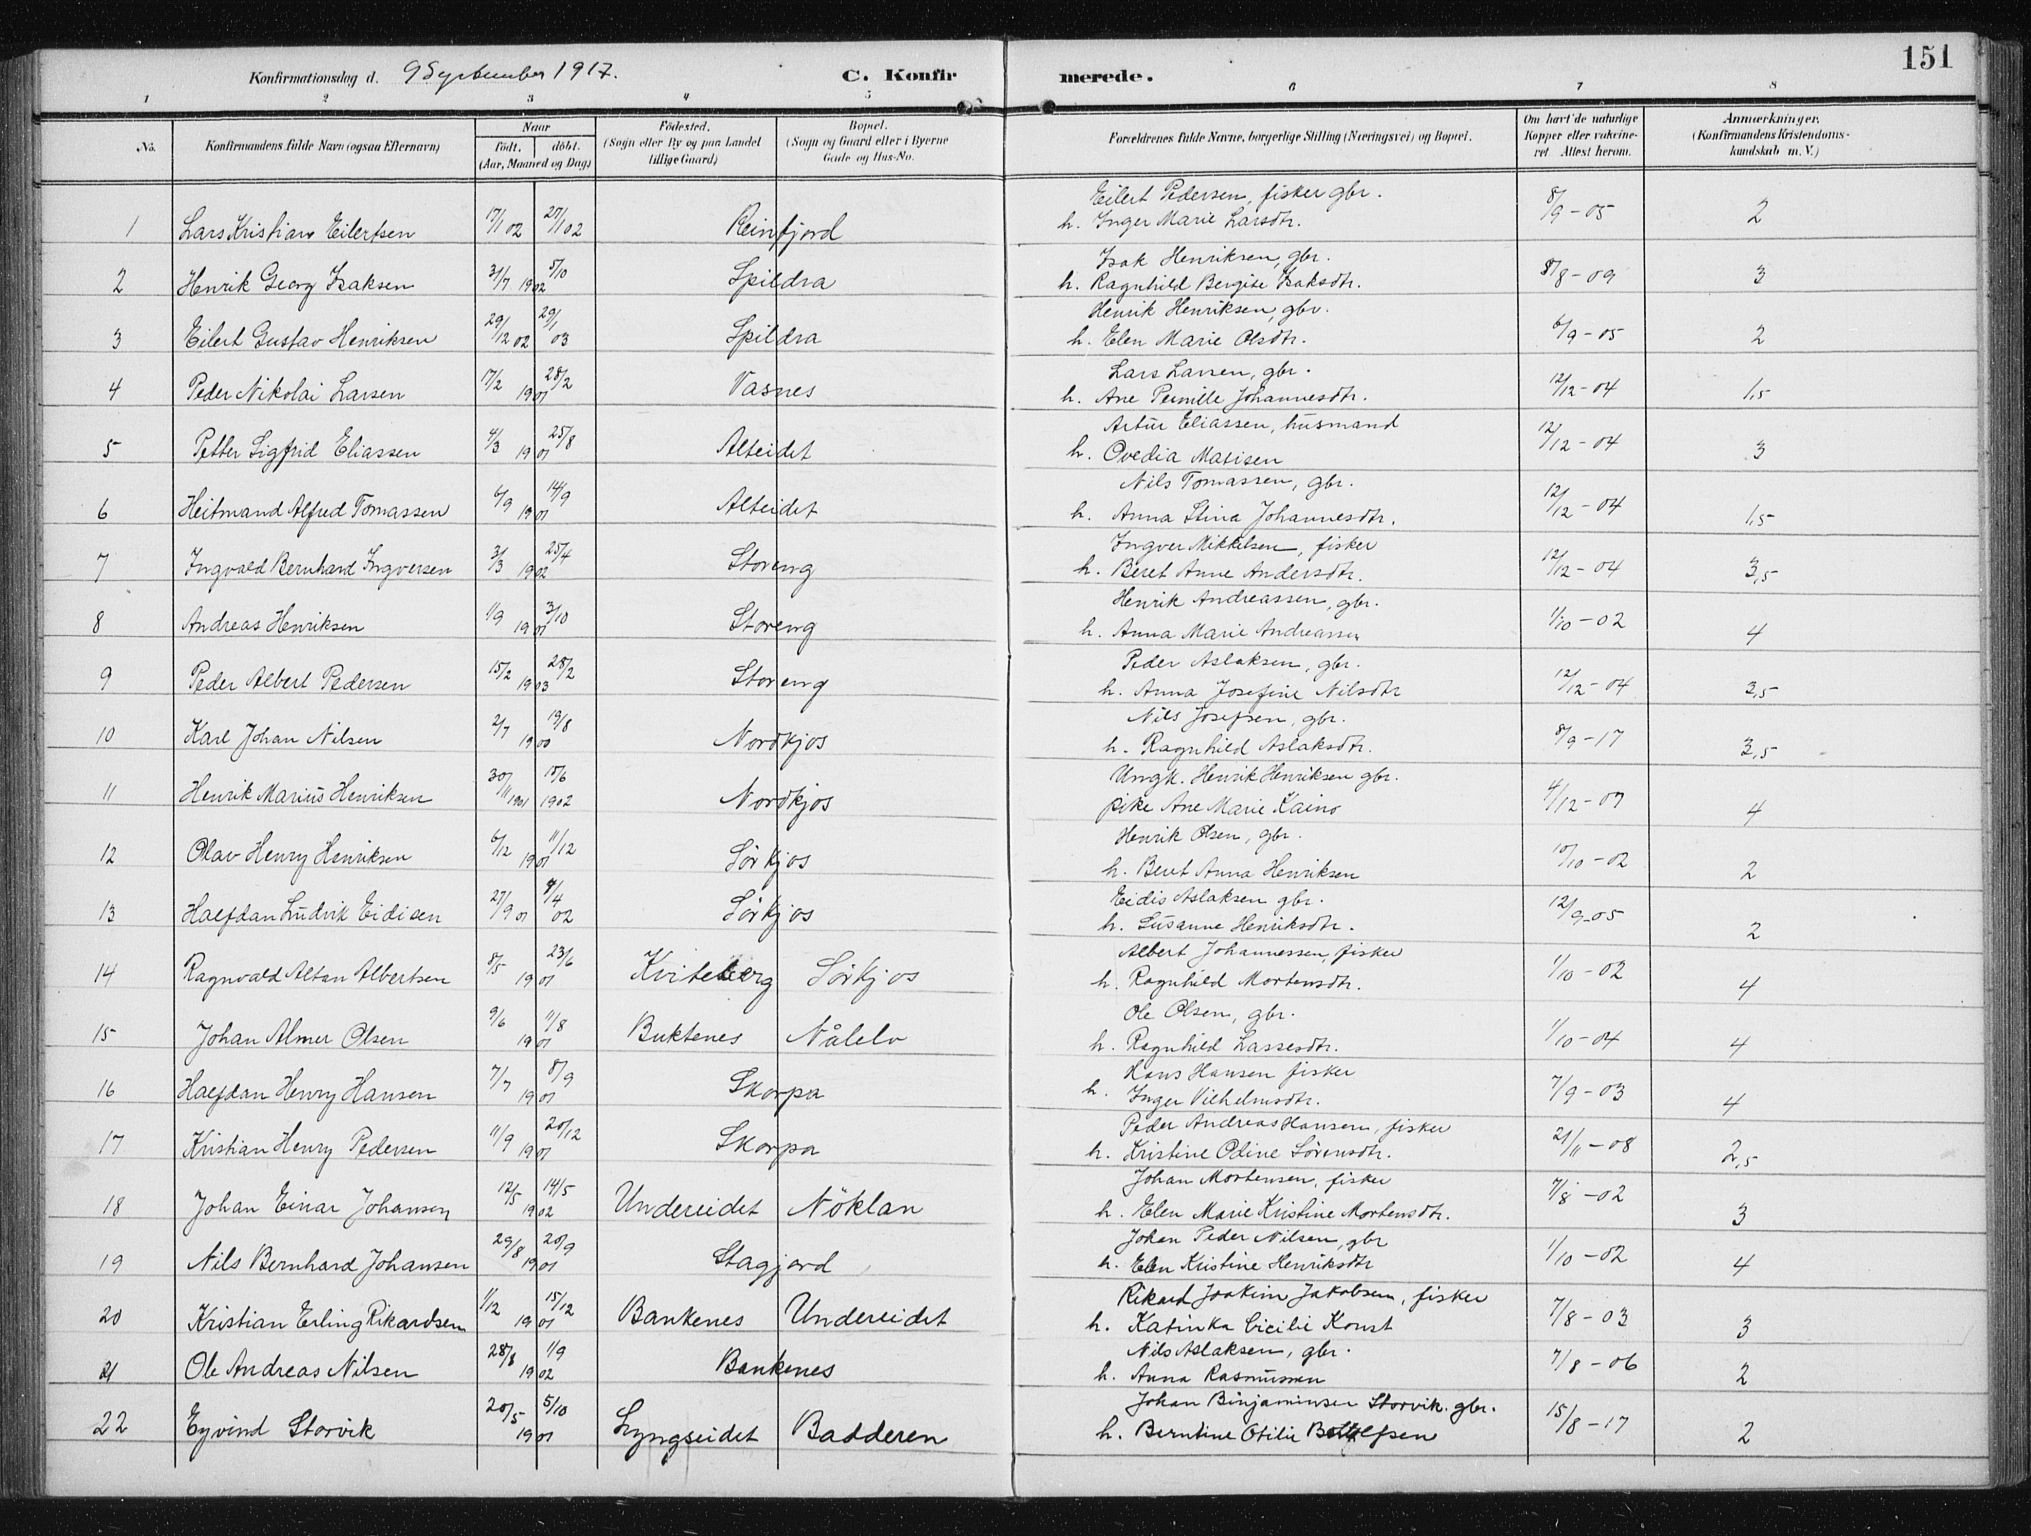 151
Konfirmationsdag d. 9 September 1917. C. Konfirmerede.
1 2 3 4 5 6 7 8
No. Konfirmandens fulde Navn (ogsaa Efternavn) Naar født. døbt. (Aar, Maaned og Dag) Fødested. (Sogn eller By og paa Landet tillige Gaard) Bopæl. (Sogn og Gaard eller i Byerne Gade og Hus-No. Forældrenes fulde Navne, borgerlige Stilling (Næringsvei) og Bopæl. Om havt de naturlige Kopper eller vakcineret. Attest herom. Anmærkninger. (Konfirmandens Kristendomskundskab m. V.)
Eilert Pedersen, fisker gbr.
1 Lars Kristian Eilertsen 17/1 02 27/1 02 Reinfjord h. Inger Marie Larsdtr. 8/9-05 2
Isak Henriksen, gbr.
2 Henrik Georg Isaksen 31/7 5/10 1902 Spildra h. Ragnhild Bergite Isaksdtr. 8/8-09 3
Henrik Henriksen, gbr.
3 Eilert Gustav Henriksen 29/12 02 29/1 03 Spildra h. Elen Marie Olsdtr. 6/9-05 2
Lars Larsen, gbr.
4 Peder Nikolai Larsen 17/2 28/2 1901 Vasnes h. Ane Pernille Johannesdtr. 12/12-04 1,5
Artur Eliassen, husmand
5 Petter Sigfrid Eliassen 4/3 25/8 1901 Alteidet h. Ovedia Matisen 12/12-04 3
Nils Tomassen, gbr.
6 Heitmand Alfred Tomassen 6/9 14/9 1901 Alteidet h. Anna Stina Johannesdtr. 12/12-04 1,5
Ingver Mikkelsen, fisker
7 Ingvald Bernhard Ingversen 3/3 25/4 1902 Storeng h. Beret Anne Andersdtr. 12/12-04 3,5
Henrik Andreassen, gbr.
8 Andreas Henriksen 1/9 3/10 1901 Storeng h. Anna Marie Andreassen 1/10-02 4
Peder Aslaksen, gbr.
9 Peder Albert Pedersen 15/2 28/2 1903 Storeng h. Anna Josefine Nilsdtr 12/12-04 3,5
Nils Josefsen, gbr.
10 Karl Johan Nilsen 2/7 19/8 1900 Nordkjos h. Ragnhild Aslaksdtr. 8/9-17 3,5
Ungk. Henrik Henriksen gbr.
11 Henrik Marius Henriksen 30/11 1901 15/6 1902 Nordkjos pike Ane Marie Kaino 4/12-07 4
Henrik Olsen, gbr.
12 Olav Henry Henriksen 6/12 11/12 1901 Sørkjos h. Beret Anna Henriksen 10/10-02 2
Eidis Aslaksen gbr.
13 Halfdan Ludvik Eidisen 27/9 01 4/4 02 Sørkjos h. Susanne Henriksdtr. 12/9-05 2
Albert Johannessen, fisker
14 Ragnvald Altan Albertsen 8/5 23/6 1901 Kviteberg Sørkjos h. Ragnhild Mortensdtr. 1/10-02 4
Ole Olsen, gbr.
15 Johan Almer Olsen 9/6 11/8 1901 Buktenes Nålelv h. Ragnhild Lassesdtr. 1/10-04 4
Hans Hansen fisker
16 Halfdan Henry Hansen 7/7 8/9 1901 Skorpa h. Inger Vilhelmsdtr. 7/9-03 4
Peder Andreas Hansen, fisker
17 Kristian Henry Pedersen 11/9 20/12 1901 Skorpa h. Kristine Odine Sørensdtr. 21/11-08 2,5
Johan Mortensen, fisker
18 Johan Einar Johansen 12/5 14/5 1902 Undereidet Nöklan h. Elen Marie Kristine Mortensdtr. 7/8-02 3
Johan Peder Nilsen, gbr
19 Nils Bernhard Johansen 29/8 20/9 1901 Stagjord h. Elen Kristine Henriksdtr 1/10-02 4
Rikard Joakim Jakobsen, fisker
20 Kristian Erling Rikardsen 1/12 15/12 1901 Bankenes Undereidet h. Katinka Cicilie Konst 7/8-03 3
Nils Aslaksen, gbr.
21 Ole Andreas Nilsen 28/8 1/9 1902 Bankenes h. Anna Rasmussen 7/8-06 2
Johan Binjaminsen Storvik. gbr.
22 Eyvind Storvik 20/5 5/10 1901 Lyngseidet Badderen h. Berntine Otilie 15/8-17 2